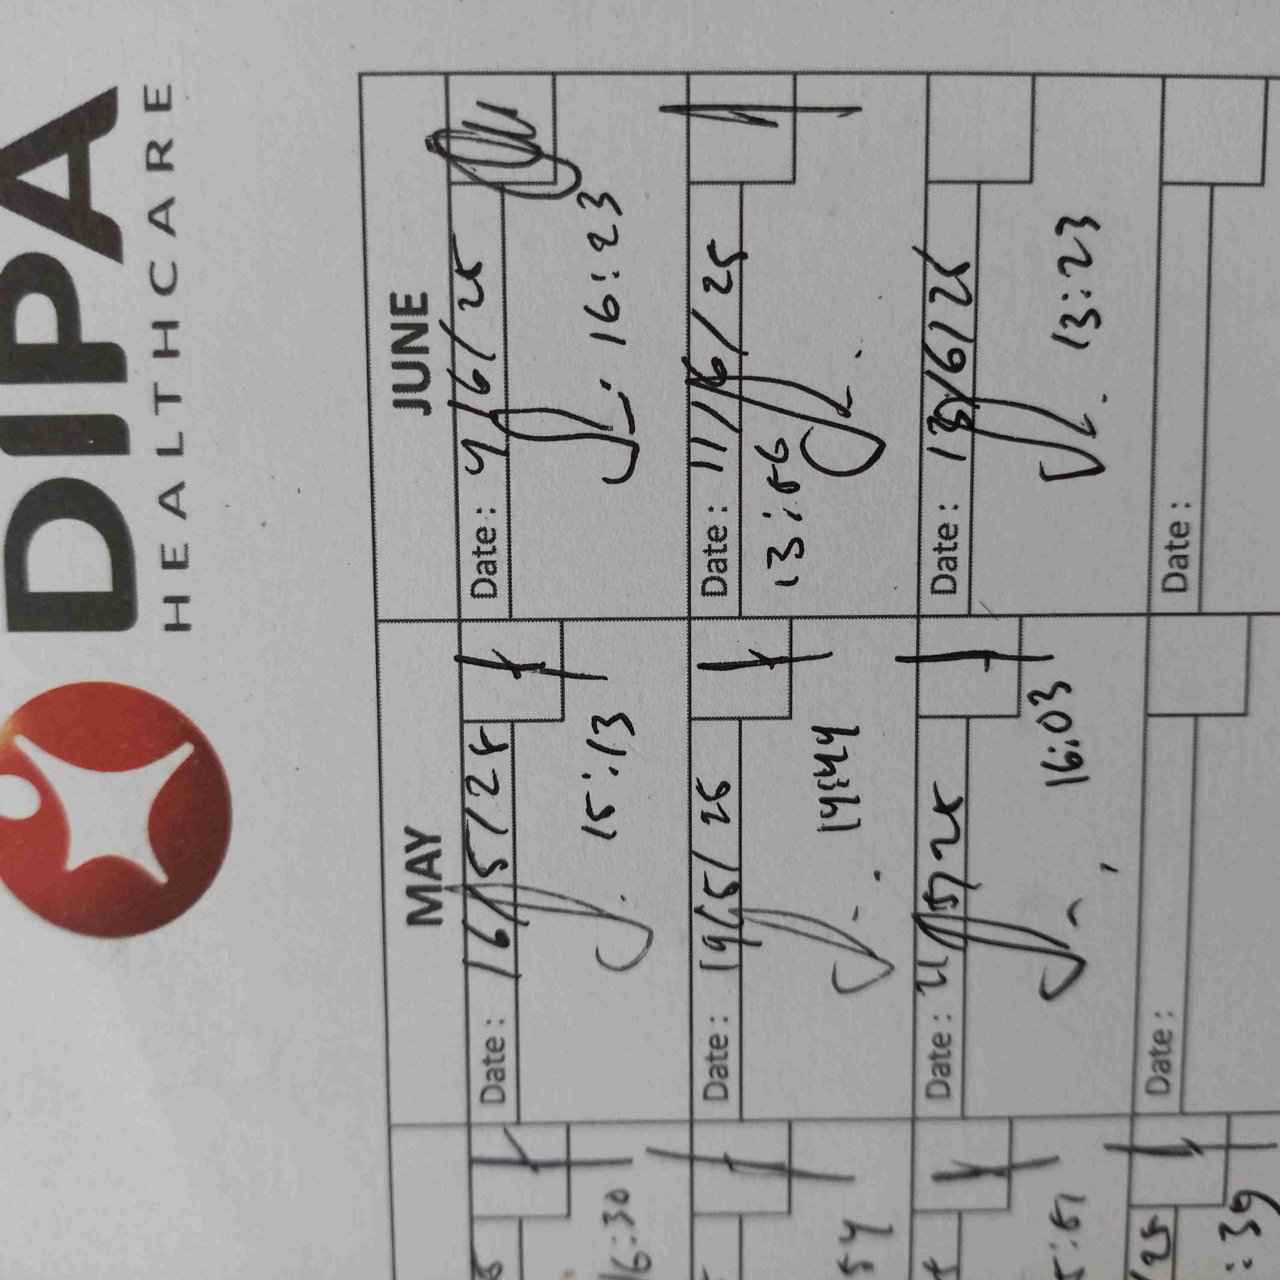 DIPA
HEALTHCARE
MAY
JUNE
Date: 16/5/25
15:13
Date: 4/6/25
16:23
Date: 19/5/25
14:44
Date: 11/6/25
13:56
Date: 21/5/25
16:03
Date: 13/6/25
13:23
Date:
Date:
16:30
54
/25
:39